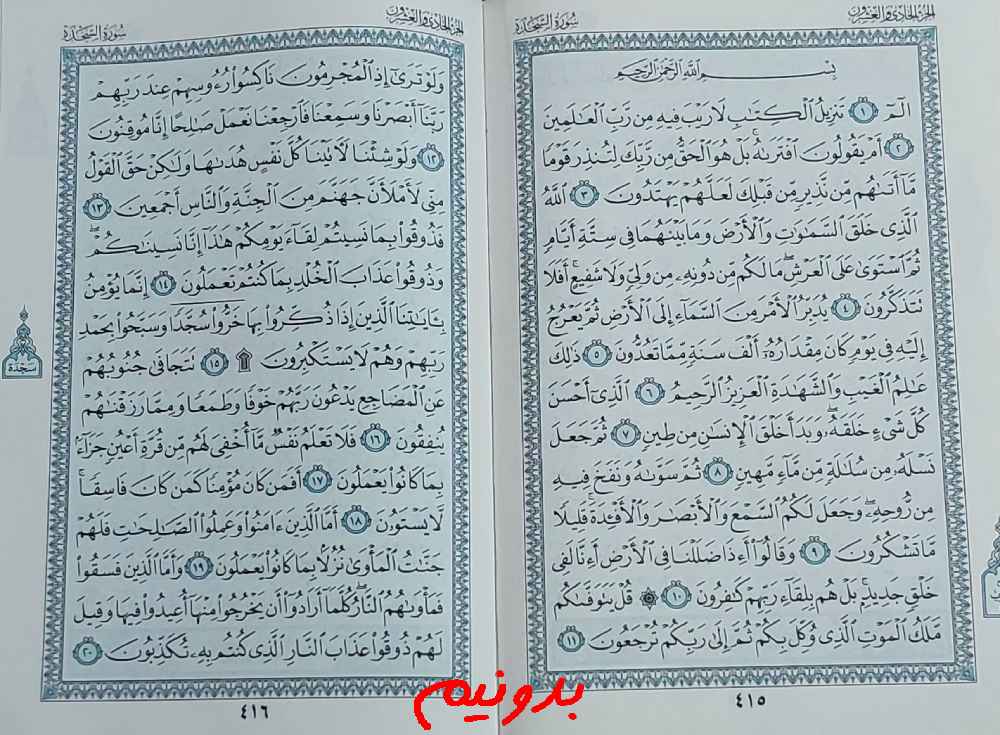 الجزء الحادي والعشرون
سورة السجدة
بِسْمِ اللَّهِ الرَّحْمَٰنِ الرَّحِيمِ
الٓمٓ ١ تَنزِيلُ الْكِتَٰبِ لَا رَيْبَ فِيهِ مِن رَّبِّ الْعَٰلَمِينَ
٢ أَمْ يَقُولُونَ افْتَرَىٰهُ ۚ بَلْ هُوَ الْحَقُّ مِن رَّبِّكَ لِتُنذِرَ قَوْمًا
مَّآ أَتَىٰهُم مِّن نَّذِيرٍ مِّن قَبْلِكَ لَعَلَّهُمْ يَهْتَدُونَ ٣ اللَّهُ
الَّذِي خَلَقَ السَّمَٰوَٰتِ وَالْأَرْضَ وَمَا بَيْنَهُمَا فِي سِتَّةِ أَيَّامٍ
ثُمَّ اسْتَوَىٰ عَلَى الْعَرْشِ ۖ مَا لَكُم مِّن دُونِهِۦ مِن وَلِيٍّ وَلَا شَفِيعٍ ۚ أَفَلَا
تَتَذَكَّرُونَ ٤ يُدَبِّرُ الْأَمْرَ مِنَ السَّمَآءِ إِلَى الْأَرْضِ ثُمَّ يَعْرُجُ
إِلَيْهِ فِي يَوْمٍ كَانَ مِقْدَارُهُۥٓ أَلْفَ سَنَةٍ مِّمَّا تَعُدُّونَ ٥ ذَٰلِكَ
عَٰلِمُ الْغَيْبِ وَالشَّهَٰدَةِ الْعَزِيزُ الرَّحِيمُ ٦ الَّذِيٓ أَحْسَنَ
كُلَّ شَيْءٍ خَلَقَهُۥ ۖ وَبَدَأَ خَلْقَ الْإِنسَٰنِ مِن طِينٍ ٧ ثُمَّ جَعَلَ
نَسْلَهُۥ مِن سُلَٰلَةٍ مِّن مَّآءٍ مَّهِينٍ ٨ ثُمَّ سَوَّىٰهُ وَنَفَخَ فِيهِ
مِن رُّوحِهِۦ ۖ وَجَعَلَ لَكُمُ السَّمْعَ وَالْأَبْصَٰرَ وَالْأَفْـِٔدَةَ ۚ قَلِيلًا
مَّا تَشْكُرُونَ ٩ وَقَالُوٓا۟ أَءِذَا ضَلَلْنَا فِي الْأَرْضِ أَءِنَّا لَفِي
خَلْقٍ جَدِيدٍ ۚ بَلْ هُم بِلِقَآءِ رَبِّهِمْ كَٰفِرُونَ ١٠ ۞ قُلْ يَتَوَفَّىٰكُم
مَّلَكُ الْمَوْتِ الَّذِي وُكِّلَ بِكُمْ ثُمَّ إِلَىٰ رَبِّكُمْ تُرْجَعُونَ ١١
٤١٥
الجزء الحادي والعشرون
سورة السجدة
وَلَوْ تَرَىٰٓ إِذِ الْمُجْرِمُونَ نَاكِسُوا۟ رُءُوسِهِمْ عِندَ رَبِّهِمْ
رَبَّنَآ أَبْصَرْنَا وَسَمِعْنَا فَارْجِعْنَا نَعْمَلْ صَٰلِحًا إِنَّا مُوقِنُونَ
١٢ وَلَوْ شِئْنَا لَءَاتَيْنَا كُلَّ نَفْسٍ هُدَىٰهَا وَلَٰكِنْ حَقَّ الْقَوْلُ
مِنِّي لَأَمْلَأَنَّ جَهَنَّمَ مِنَ الْجِنَّةِ وَالنَّاسِ أَجْمَعِينَ ١٣
فَذُوقُوا۟ بِمَا نَسِيتُمْ لِقَآءَ يَوْمِكُمْ هَٰذَآ إِنَّا نَسِينَٰكُمْ ۖ
وَذُوقُوا۟ عَذَابَ الْخُلْدِ بِمَا كُنتُمْ تَعْمَلُونَ ١٤ إِنَّمَا يُؤْمِنُ
بِـَٔايَٰتِنَا الَّذِينَ إِذَا ذُكِّرُوا۟ بِهَا خَرُّوا۟ سُجَّدًا وَسَبَّحُوا۟ بِحَمْدِ
رَبِّهِمْ وَهُمْ لَا يَسْتَكْبِرُونَ ۩ ١٥ تَتَجَافَىٰ جُنُوبُهُمْ
سجدة
عَنِ الْمَضَاجِعِ يَدْعُونَ رَبَّهُمْ خَوْفًا وَطَمَعًا وَمِمَّا رَزَقْنَٰهُمْ
يُنفِقُونَ ١٦ فَلَا تَعْلَمُ نَفْسٌ مَّآ أُخْفِيَ لَهُم مِّن قُرَّةِ أَعْيُنٍ جَزَآءًۢ
بِمَا كَانُوا۟ يَعْمَلُونَ ١٧ أَفَمَن كَانَ مُؤْمِنًا كَمَن كَانَ فَاسِقًا ۚ
لَّا يَسْتَوُۥنَ ١٨ أَمَّا الَّذِينَ ءَامَنُوا۟ وَعَمِلُوا۟ الصَّٰلِحَٰتِ فَلَهُمْ
جَنَّٰتُ الْمَأْوَىٰ نُزُلًۢا بِمَا كَانُوا۟ يَعْمَلُونَ ١٩ وَأَمَّا الَّذِينَ فَسَقُوا۟
فَمَأْوَىٰهُمُ النَّارُ ۖ كُلَّمَآ أَرَادُوٓا۟ أَن يَخْرُجُوا۟ مِنْهَآ أُعِيدُوا۟ فِيهَا وَقِيلَ
لَهُمْ ذُوقُوا۟ عَذَابَ النَّارِ الَّذِي كُنتُم بِهِۦ تُكَذِّبُونَ ٢٠
٤١٦
بدونیم